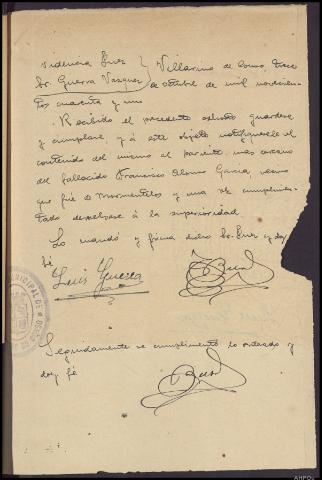 Videncia Juez } Villarino de Conso, trece
Sr. Guerra Vazquez } de octubre de mil novecien-
tos cuarenta y uno
Recibido el precedente exhorto guardese
y cumplase, y á este objeto notifiquesele el
contenido del mismo al pariente mas cercano
del fallecido Francisco Alonso Garcia, vecino
que fué de Mormentelos y una vez cumplimen-
tado devuelvase á la superioridad.
Lo mandó y firma dicho Sr. Juez y doy
fé
Luis Guerra
Seguidamente se cumplimentó lo ordenado y
doy fé
AHPOu